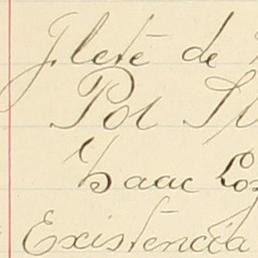 Flete de
Por
Isaac
Existencia